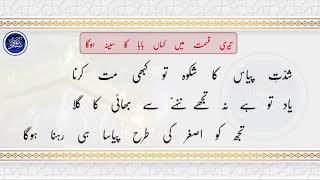 تیری قسمت میں کہاں بابا کا سینہ ہوگا
شدتِ پیاس کا شکوہ تو کبھی مت کرنا
یاد تو ہے نہ تجھے ننھے سے بھائی کا گلا
تجھ کو اصغر کی طرح پیاسا ہی رہنا ہوگا